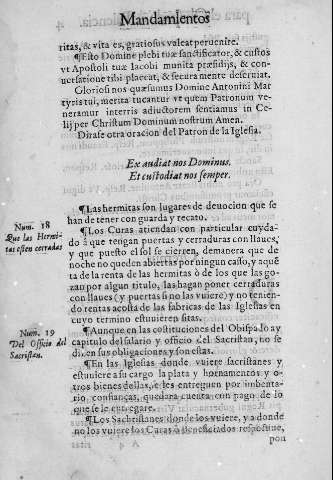 Mandamientos
ritas, & vita es, gratiosus valeat peruenire.
¶Esto Domine plebi tuæ sanctificator, & custos
vt Apostoli tuæ Iacobi munita præsidijs, & con-
uersatione tibi placeat, & secura mente deseruiat.
Gloriosi nos quæsumus Domine Antonini Mar
tyris tui, merita tucantur vt quem Patronum ve-
neramur interris adiuctorem sentiamus in Ce-
lis per Christum Dominum nostrum Amen.
Dirase otra oracion del Patron de la Iglesia.
Ex audiat nos Dominus.
Et custodiat nos semper.
¶Las hermitas son lugares de deuocion que se
han de tener con guarda y recato.
Num. 18
Que las Hermi-
tas esten cerradas
¶Los Curas atiendan con particular cuyda-
do á que tengan puertas y cerraduras con llaues,
y que puesto el sol se cierren, demanera que de
noche no queden abiertas por ningun caso, y aquē
ta de la renta de las hermitas ò de los que las go-
zan por algun titulo, las hagan poner cerraduras
con llaues (y puertas si no las vuiere) y no tenien-
do rentas acosta de las fabricas de las Iglesias en
cuyo termino estuuieren sitas.
Num. 19
Del Officio del
Sacristan.
¶Aunque en las costituciones del Obispalo ay
capitulo del salario y officio del Sacristan, no se
dizen sus obligaciones y son estas.
¶En las Iglesias donde vuiere sacristanes y
estuuiere a su cargo la plata y hornamentos y o-
tros bienes dellas, se les entreguen por imbenta-
rio confianças, quedara cuenta con pago de lo
que se le entregare.
¶Los Sachristanes donde los vuiere, y a donde
no los vuiere los Curas ò beneficiados
A 4
pon